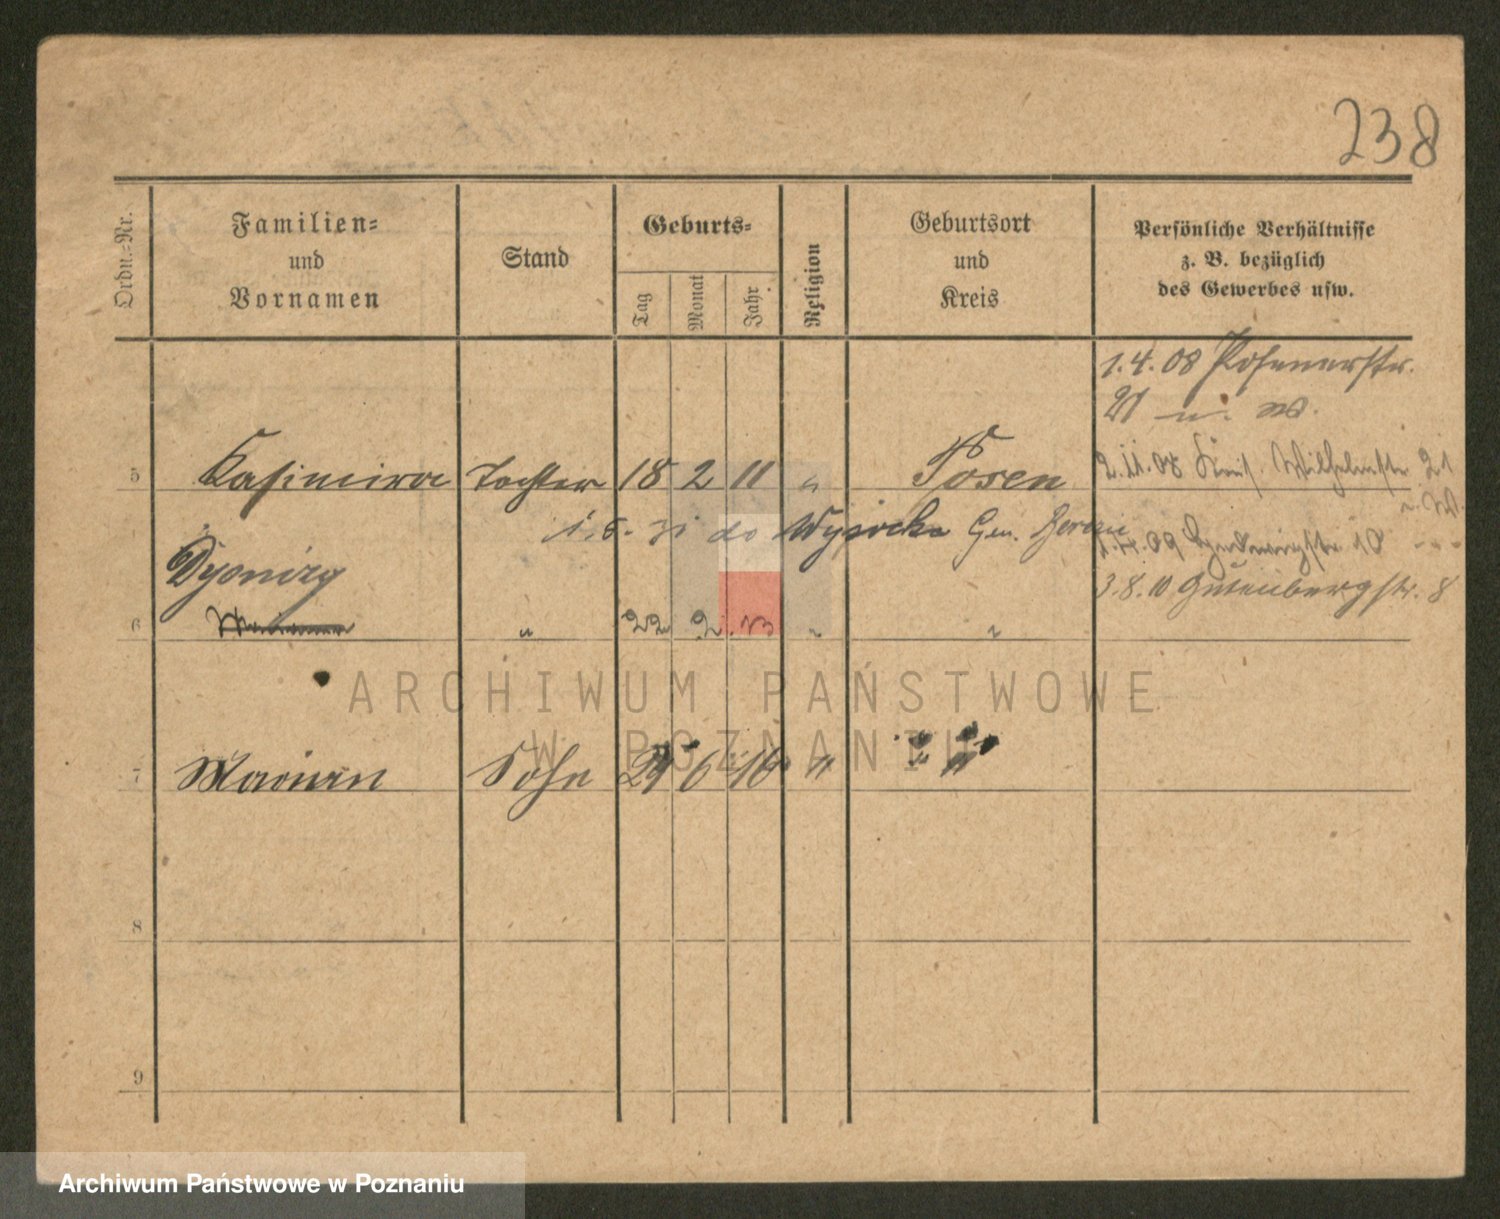 238
Ordn.-Nr.
Familien-
und
Vornamen
Stand
Geburts-
Tag
Monat
Jahr
Religion
Geburtsort
und
Kreis
Persönliche Verhältnisse
z. B. bezüglich
des Gewerbes usw.
1.4.08 Posenerstr.
21 u. W.
5 Kasimira Tochter 18 2 11 " Posen
2.11.08 Wilhelmstr. 21
u. W.
1.5.31 do Wysocka Gen.
09 Ludwigstr. 10
Dyonizy
3.8.10 Gutenbergstr. 8
6 " 22 2 13 " "
7 Marian Sohn 6 16 " "
8
9
ARCHIWUM PAŃSTWOWE
W POZNANIU
Archiwum Państwowe w Poznaniu